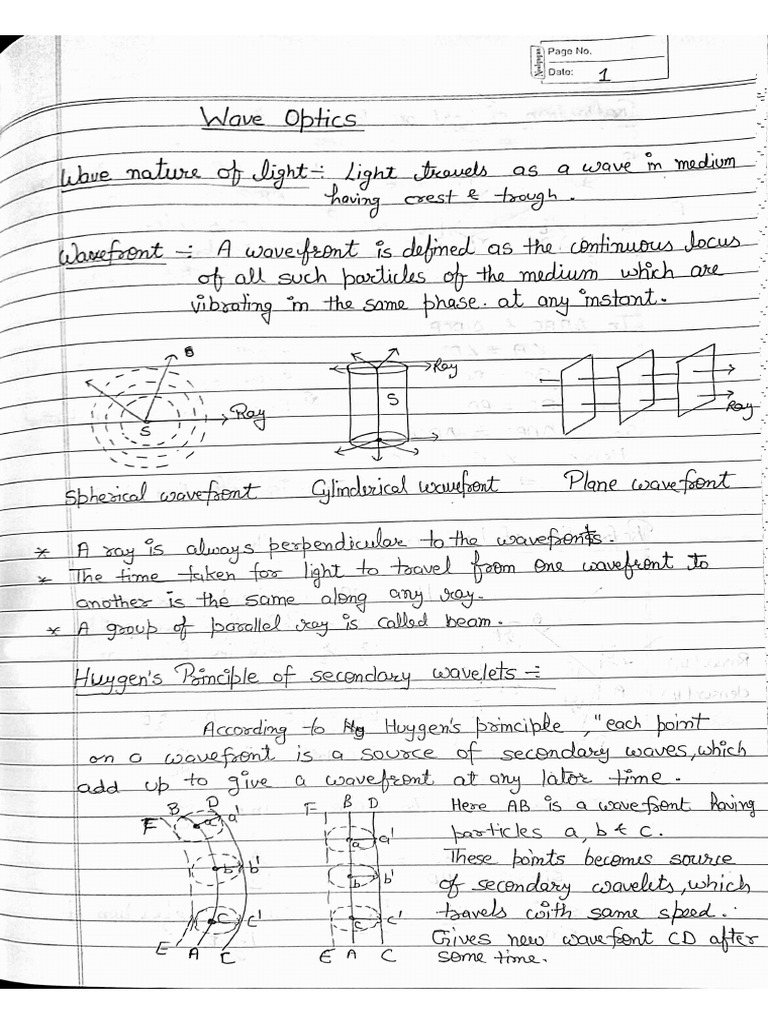 Page No.
Date: 1
Wave Optics
Wave nature of light :- Light travels as a wave in medium
having crest & trough.
Wavefront :- A wavefront is defined as the continuous locus
of all such particles of the medium which are
vibrating in the same phase. at any instant.
S Ray
S Ray
Ray
Spherical wavefront Cylinderical wavefront Plane wavefront
* A ray is always perpendicular to the wavefronts.
* The time taken for light to travel from one wavefront to
another is the same along any ray.
* A group of parallel ray is called beam.
Huygen's Principle of secondary wavelets :-
According to Huygen's principle, "each point
on a wavefront is a source of secondary waves, which
add up to give a wavefront at any later time.
F B D a a' b b' c c' E A C
F B D a a' b b' c c' E A C
Here AB is a wavefront having
particles a, b & c.
These points becomes source
of secondary wavelets, which
travels with same speed.
Gives new wavefront CD after
some time.